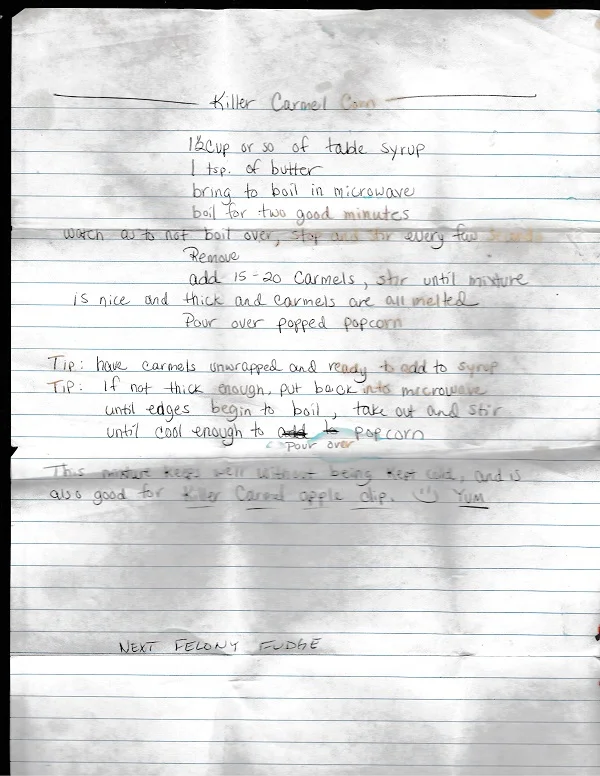 Killer Carmel Corn
1½ cup or so of table syrup
1 tsp. of butter
bring to boil in microwave
boil for two good minutes
watch as to not boil over, stop and stir every few seconds
Remove
add 15-20 Carmels, stir until mixture
is nice and thick and carmels are all melted
Pour over popped popcorn
Tip: have carmels unwrapped and ready to add to syrup
Tip: If not thick enough, put back into mecrowave
until edges begin to boil, take out and stir
until cool enough to add to popcorn
pour over
This mixture keeps well without being kept cold, and is
also good for Killer Carmel apple dip. Yum
NEXT FELONY FUDGE